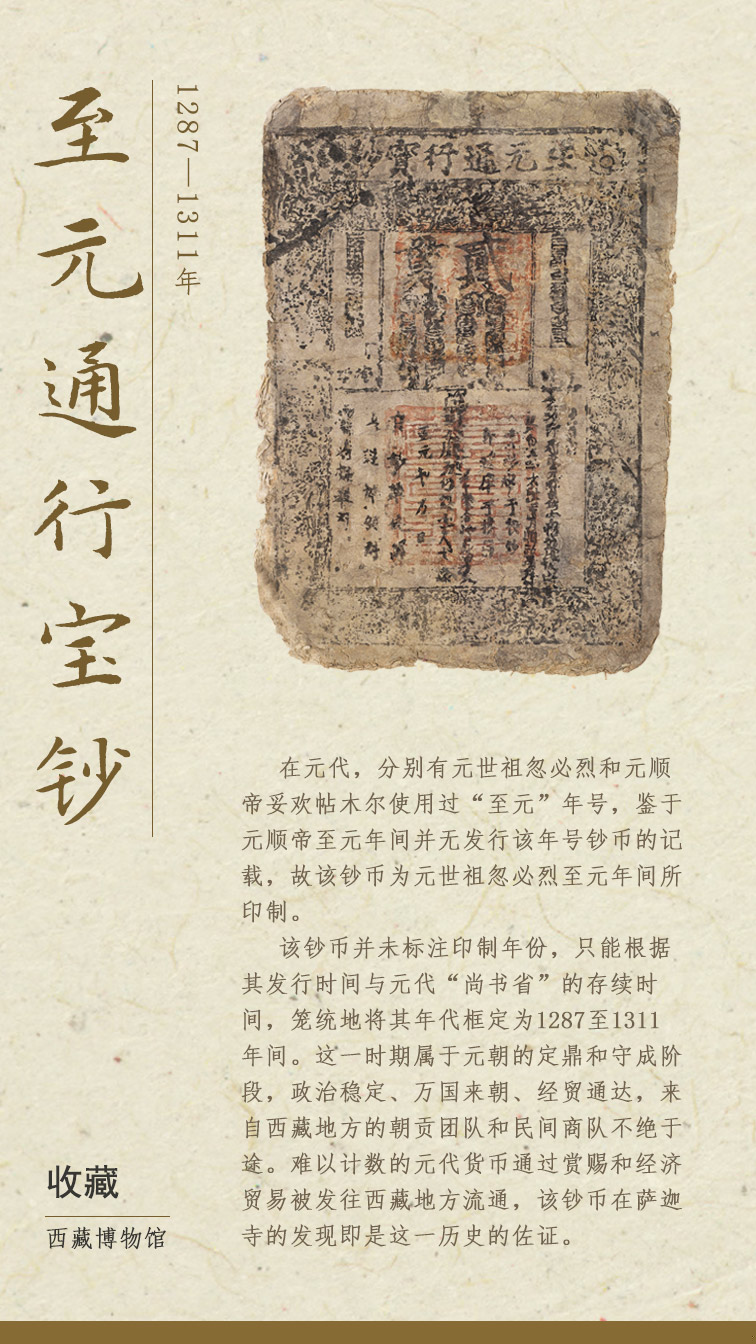 至元通行宝钞
1287—1311年
至元通行寳
貳
在元代，分别有元世祖忽必烈和元顺
帝妥欢帖木尔使用过“至元”年号，鉴于
元顺帝至元年间并无发行该年号钞币的记
载，故该钞币为元世祖忽必烈至元年间所
印制。
该钞币并未标注印制年份，只能根据
其发行时间与元代“尚书省”的存续时
间，笼统地将其年代框定为1287至1311
年间。这一时期属于元朝的定鼎和守成阶
段，政治稳定、万国来朝、经贸通达，来
自西藏地方的朝贡团队和民间商队不绝于
途。难以计数的元代货币通过赏赐和经济
贸易被发往西藏地方流通，该钞币在萨迦
寺的发现即是这一历史的佐证。
收藏
西藏博物馆